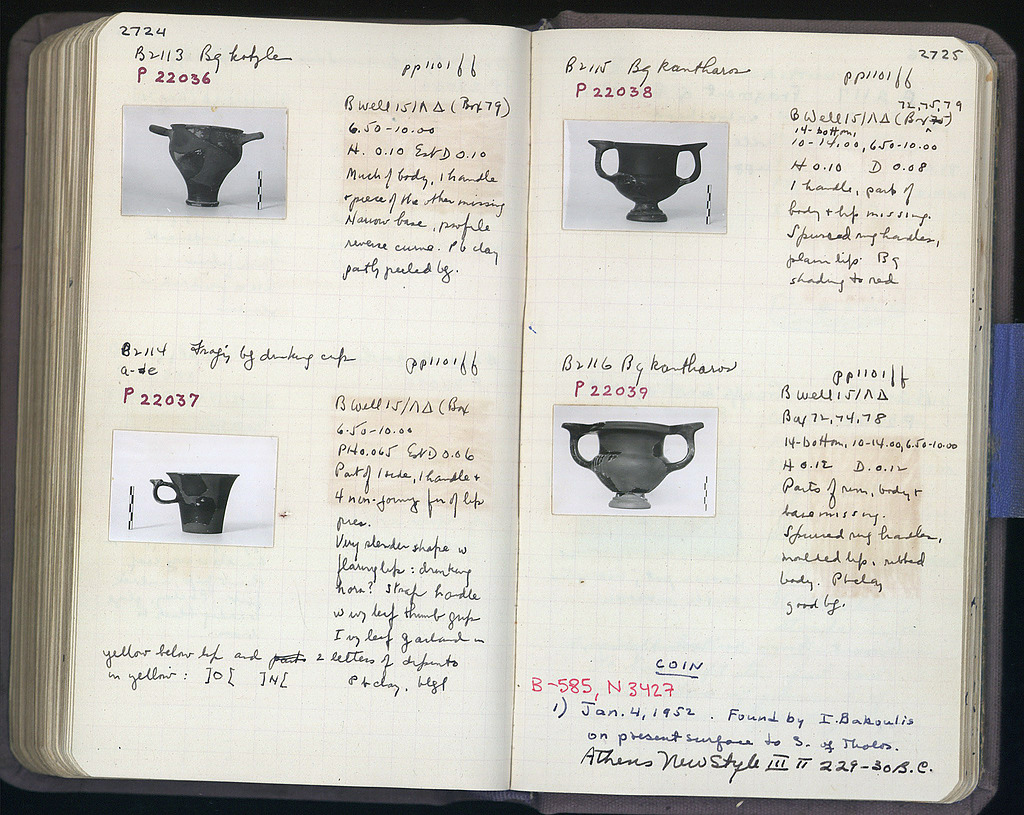 2724
B2113 Bg kotyle
pp1101ff
P 22036
B Well 15/ΛΔ (Box 79)
6.50-10.00
H. 0.10 Est D 0.10
Much of body, 1 handle
+ piece of the other missing
Narrow base, profile
reverse curve. Pb clay
partly peeled bg.
B2114 Frag's bg drinking cup
a-e
pp1101ff
P 22037
B Well 15/ΛΔ (Box
6.50-10.00
PH 0.065 Est D 0.06
Part of 1 side, 1 handle +
4 non-joining frr of lip
pres.
Very slender shape w
flaring lip: drinking
horn? Strap handle
w ivy leaf thumb grip
Ivy leaf garland in
yellow below lip and parts 2 letters of dipinto
in yellow: ]O[ ]N[ Pb clay, blgl
2725
B2115 Bg kantharos
pp1101ff
P 22038
72,75,79
B Well 15/ΛΔ (Box 75)
14-bottom,
10-14.00, 6.50-10.00
H 0.10 D 0.08
1 handle, part of
body + lip missing.
Spurred ring handles,
plain lip. Bg
shading to red
B2116 Bg kantharos
pp1101ff
P 22039
B Well 15/ΛΔ
Box 72,74,78
14-bottom, 10-14.00, 6.50-10.00
H 0.12 D. 0.12
Parts of rim, body +
base missing.
Spurred ring handles,
moulded lip, ribbed
body. Pb clay
good bg.
COIN
B-585, N 3427
1) Jan. 4, 1952. Found by I. Bakoulis
on present surface to S. of Tholos.
Athens New Style III II 229-30 B.C.